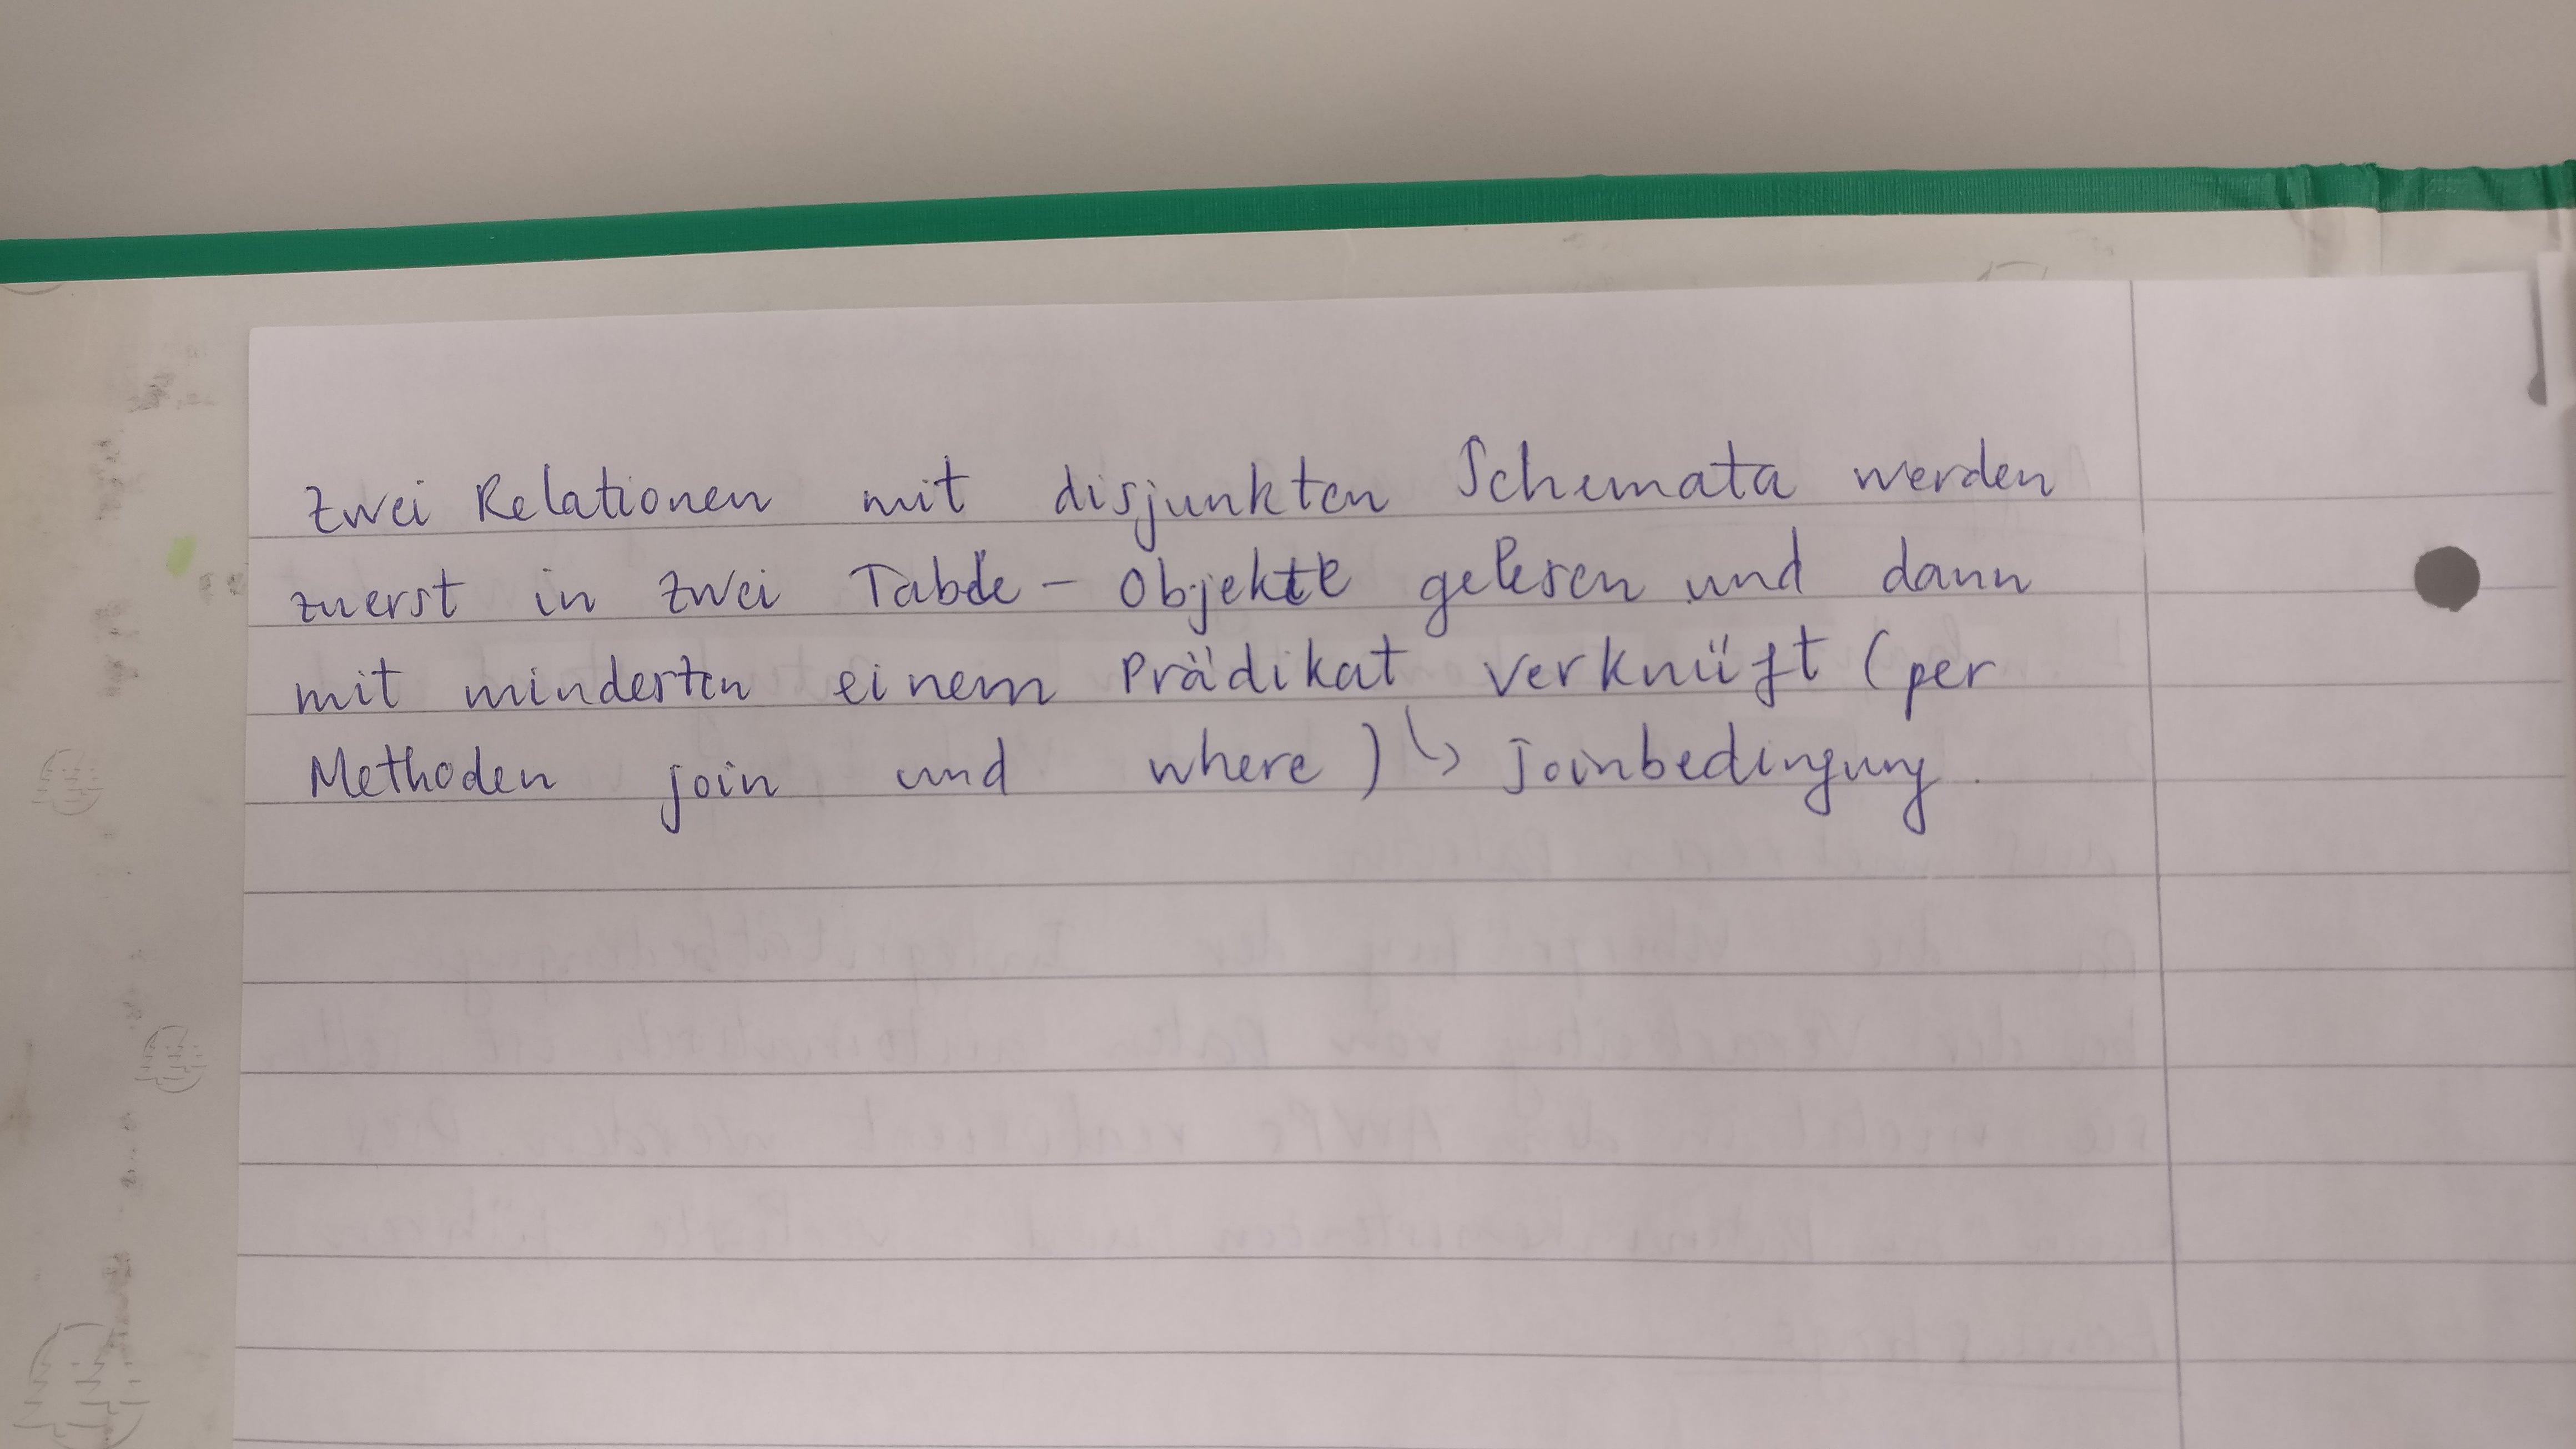 Zwei Relationen mit disjunkten Schemata werden
zuerst in zwei Table - Objekte gelesen und dann
mit mindesten einem Prädikat verknüft (per
Methoden join und where) ↳ Joinbedingung.